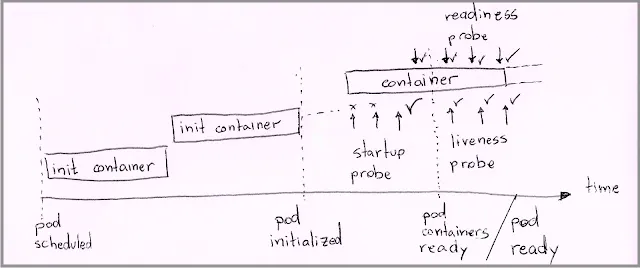 readiness
probe
container
init container
init container
startup
probe
liveness
probe
time
pod
scheduled
pod
initialized
pod
containers
ready
pod
ready